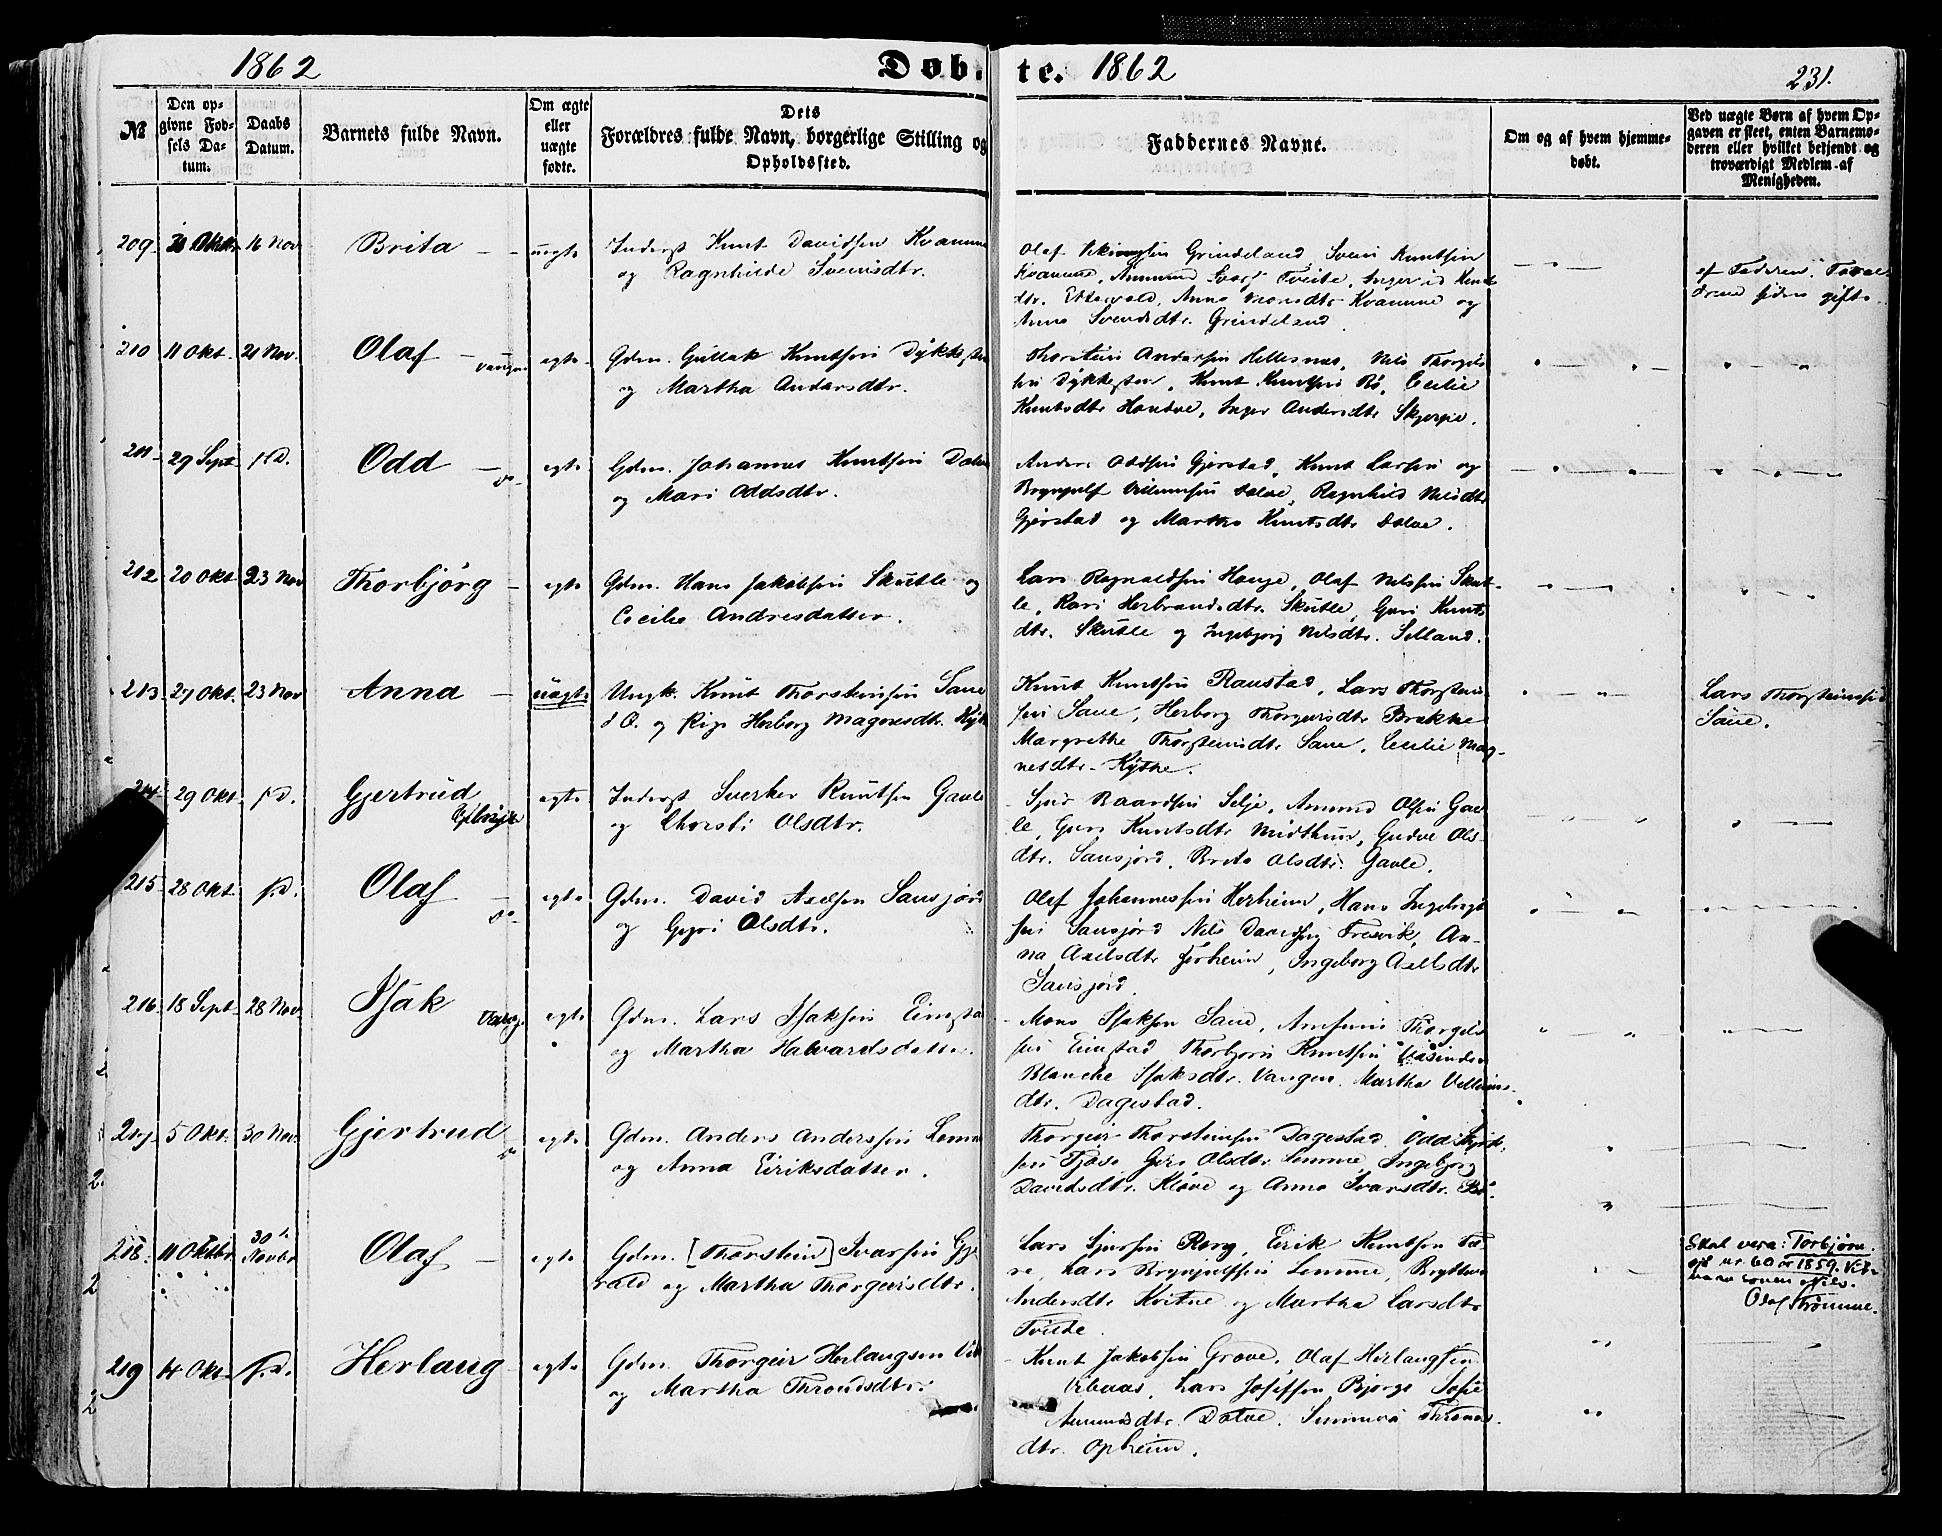 1862 Døb- te. 1862 231.
№
Den op-
givne Fød-
sels Da-
tum.
Daabs
Datum.
Barnets fulde Navn.
Om ægte
eller
uægte
fødte.
Dets
Forældres fulde Navn, borgerlige Stilling og
Opholdssted.
Faddernes Navne.
Om og af hvem hjemme-
døbt.
Ved uægte Børn af hvem Op-
gaven er skeet, enten Barnemo-
deren eller hvilket bekjendt og
troværdigt Medlem af
Menigheden.
209. 16 Nov Brita uegte
Inderst Knut Davidsen Kvamme
og Ragnhilde Svensdtr.
Olaf Grindeland, Svein Knutsen
Kvamme, Ammund Tveite, Ingerid Knuts
dtr. Ettervold, Anna Monsdtr Kvamme og
Anna Svendsdtr. Grindeland
af Faderen. Foræl-
drene siden gifte.
210 11 Okt. 21 Nov. Olaf Vangen egte
Gdm. Gullak Knutsen Dykkesten
og Martha Andersdtr.
Thorstein Andersen Hellesnes, Nils Thorgils
sen Dykkesten, Knut Knutsen Rø, Cecilie
Knutsdtr Handve, Inger Andersdtr Skjerpe.
211 29 Sept s.D. Odd do egte
Gdm. Johannes Knutsen Dolve
og Mari Oddsdtr.
Anders Oddsen Gjerstad, Knut Larsen og
Brynjulf Dolve, Ragnhild Nilsdtr
Gjerstad og Martha Knutsdtr Dolve.
212 20 Okt 23 Nov Thorbjörg egte
Gdm. Hans Jakobsen Skutle og
Cecilie Andresdatter.
Lars Ragnaldsen Hauge, Olaf Nilsen Skut-
le, Kari Herbrandsdtr. Skutle, Guri Knuts
dtr. Skutle og Ingebjorg Nilsdtr. Selland.
213. 27 Okt. 23 Nov Anna uegte
Ungk. Knut Thorsteinsen Saue
s O. og Pige Herborg Magnesdtr. Kyte
Knut Knutsen Raustad, Lars Thorstein
sen Saue, Herborg Thorgeirsdtr Brække
Margrethe Thorsteinsdtr Saue, Cecilie Mag-
nesdtr. Kythe.
Lars Thorsteinsen
Saue.
214 29 Okt. s.D. Gjertrud egte
Inderst Sverker Knutsen Gavle
og Chorsti Olsdtr.
Sjur Baardsen Selje, Amund Olsen Gav
le, Guri Knutsdtr Midthun, Gudve Ols-
dtr. Sausjord, Brita Olsdtr. Gavle.
215. 28 Okt s.D. Olaf do egte
Gdm. David Axelsen Sausjord
og Gyri Olsdtr.
Olef Johannessen Herheim, Hans Ingebrigt
sen Sausjörd Nils Davidsen Tresvik, An-
na Axelsdtr Jerheim, Ingeborg Axelsdtr
Sausjørd.
216. 18 Sept 28 Nov Isak Vang. egte
Gdm. Lars Isaksen Eimstad
og Martha Halvardsdatter.
Mons Isaksen Saue, Thorgils
sen Eimstad Thorbjörn Knutsen
Blanche Isaksdtr. Vangen. Martha Villums
dtr. Dagestad.
217. 5 Okt. 30 Nov. Gjertrud egte
Gdm. Anders Anderssen Lemme
og Anna Eiriksdatter.
Thorgeir Thorsteinsen Dagestad. Odd
sen Tjose Guri Olsdtr. Lemme, Ingebjorg
Davidsdtr. Kløve og Anna Ivarsdtr. Bø.
218. 11 Oktbr 30te Novbr Olaf egte
Gdm. [Thorstein] Ivarsen Gje
rald og Martha Thorgeirsdtr.
Lars Sjursen Rong, Eirik Knutsen Tø-
re, Lars Brynjulfsen Lemme, Bryteva
Andersdtr Kvitne og Martha Larsdtr
Tveite.
Skal vera: Torbjørn.
sjå nr 60 år 1859.
vara sonen Nils.
Olaf Strømme.
219 14 Okt. s.D. Herlaug egte
Gdm. Thorgeir Herlaugsen
og Martha Throndsdtr.
Knut Jakobsen Grove. Olaf Herlaugsen
Urbaas, Lars Josefsen Bjørge Sofie
Ammundsdtr. Dolve. Sunneva Thronds-
dtr. Opheim.